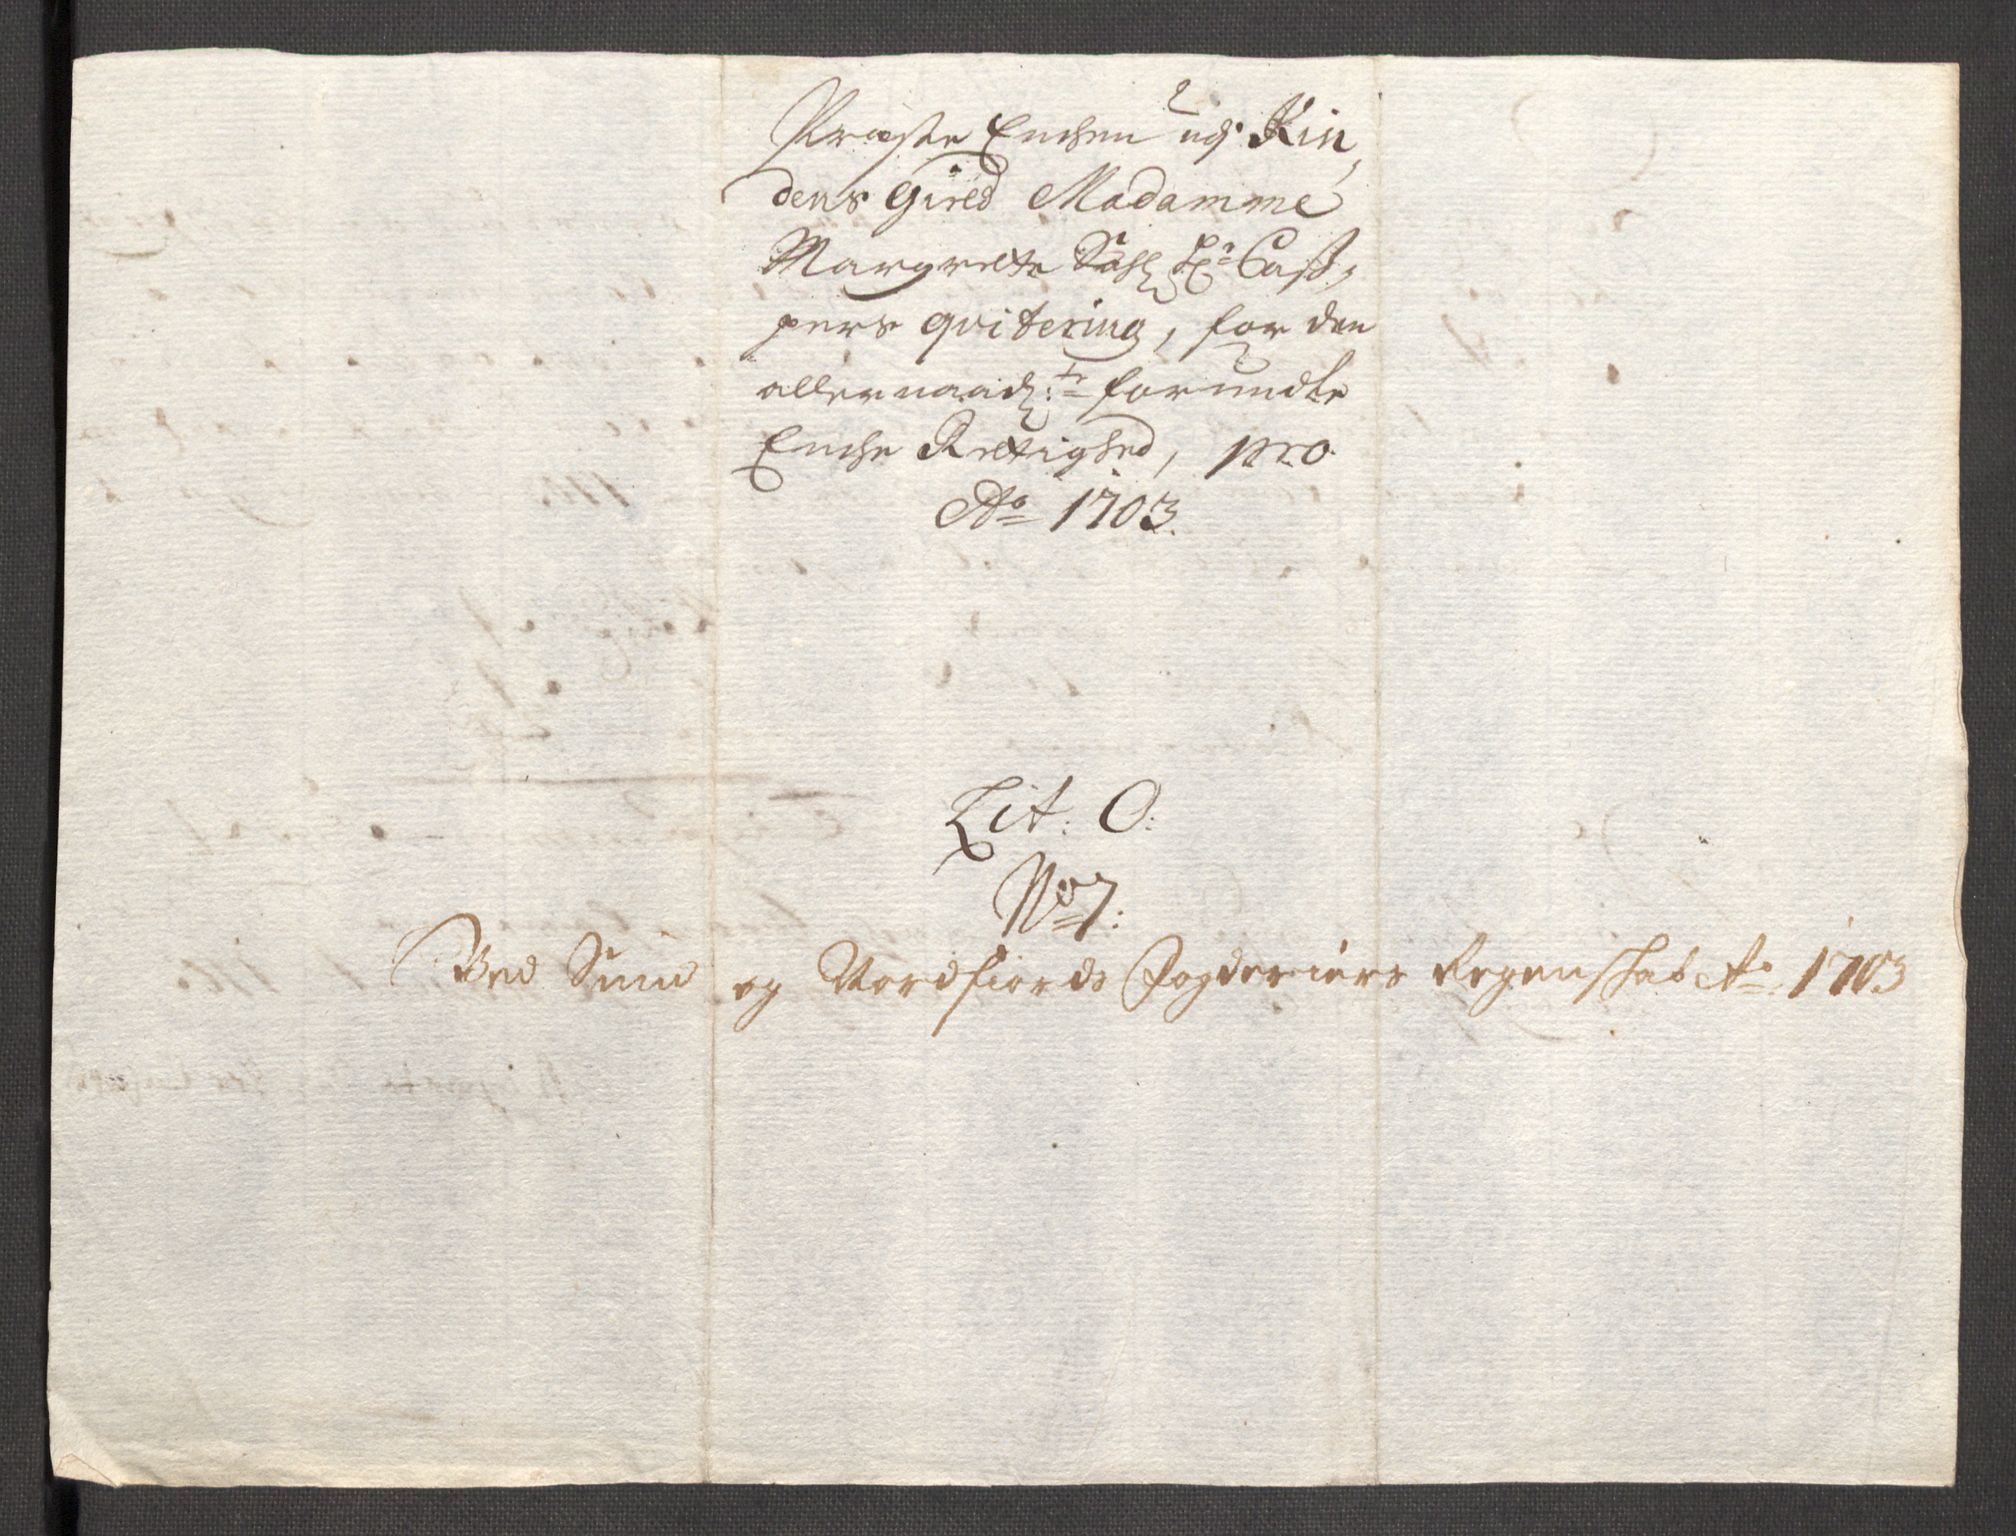 Præste Enchen udj Kin,
dens Gield Madamme
Margrete Sahl: Hr: Cass,
pers qvitering, for den
allernaadl:te forundte
Enche Rettighed, pro
Ao 1703.
Lit: O:
No 7:
Ved Sund og Nordfiords Fogderiers Regenskab Ao 1703